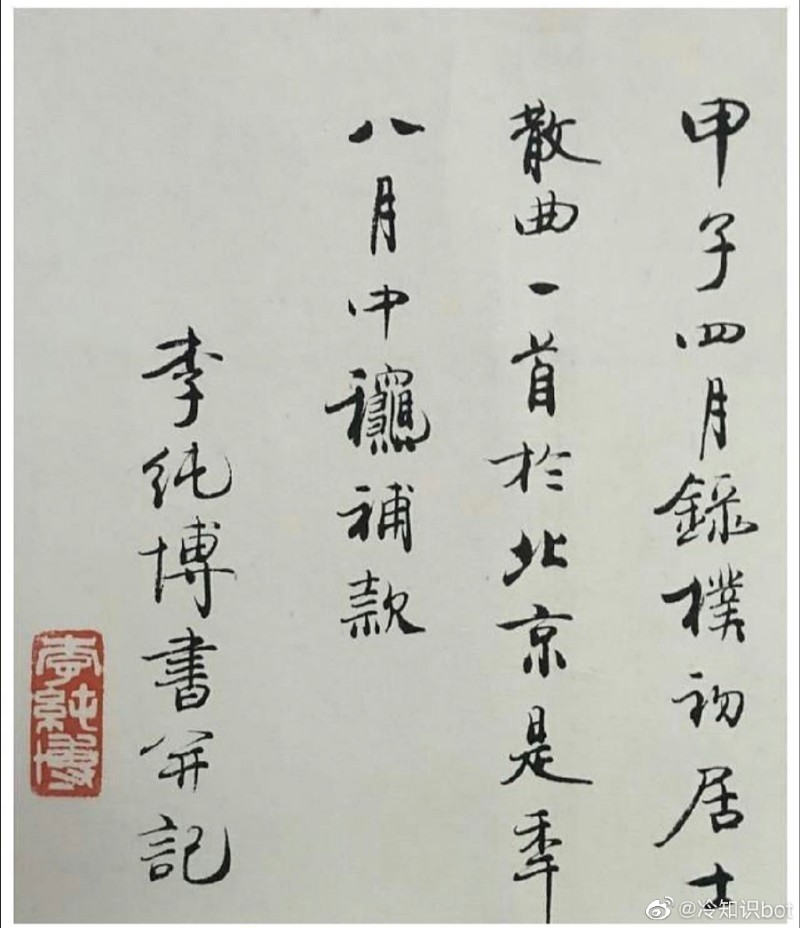 甲子四月錄樸初居士
散曲一首於北京是秊
八月中龝補款
李純博書并記
李純博
@冷知识bot